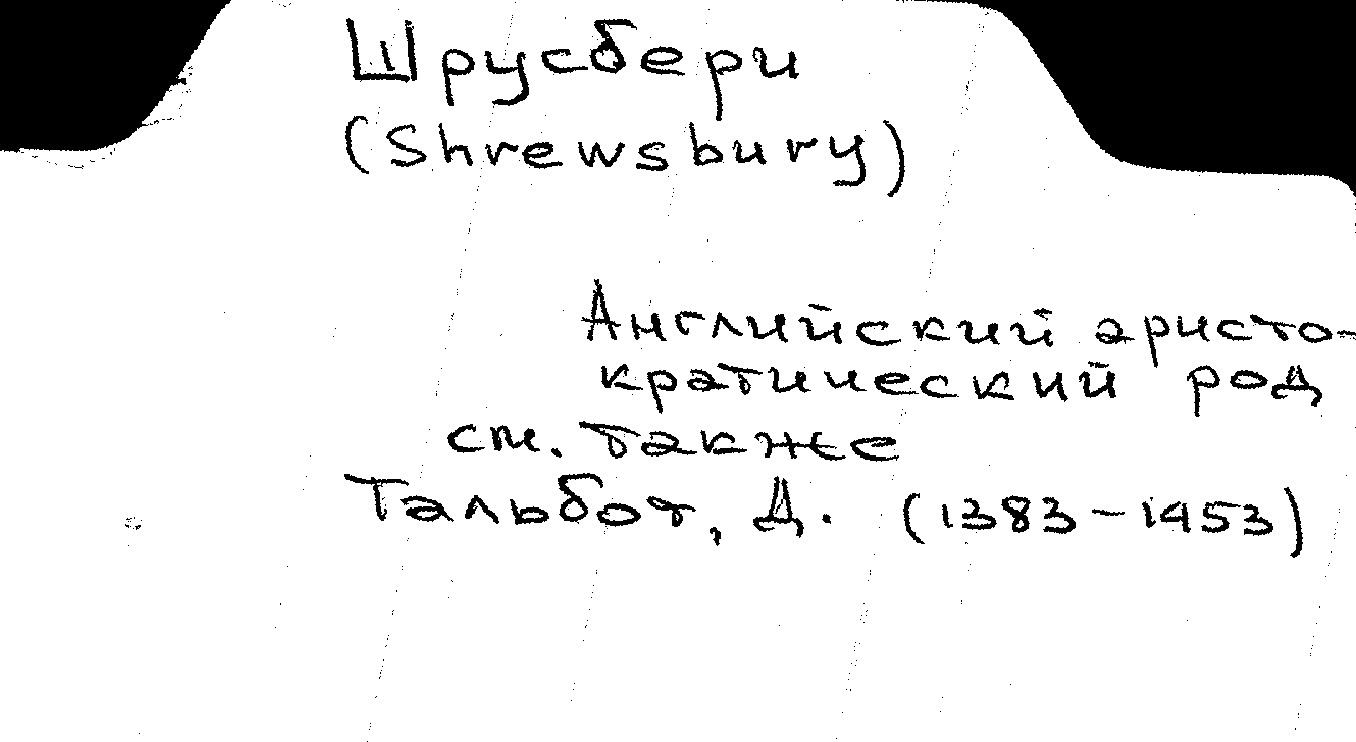 Шрусбери
(Shrewsbury)
Английский аристо-
кратический род
см. также
Тальбот, Д. (1383-1453)